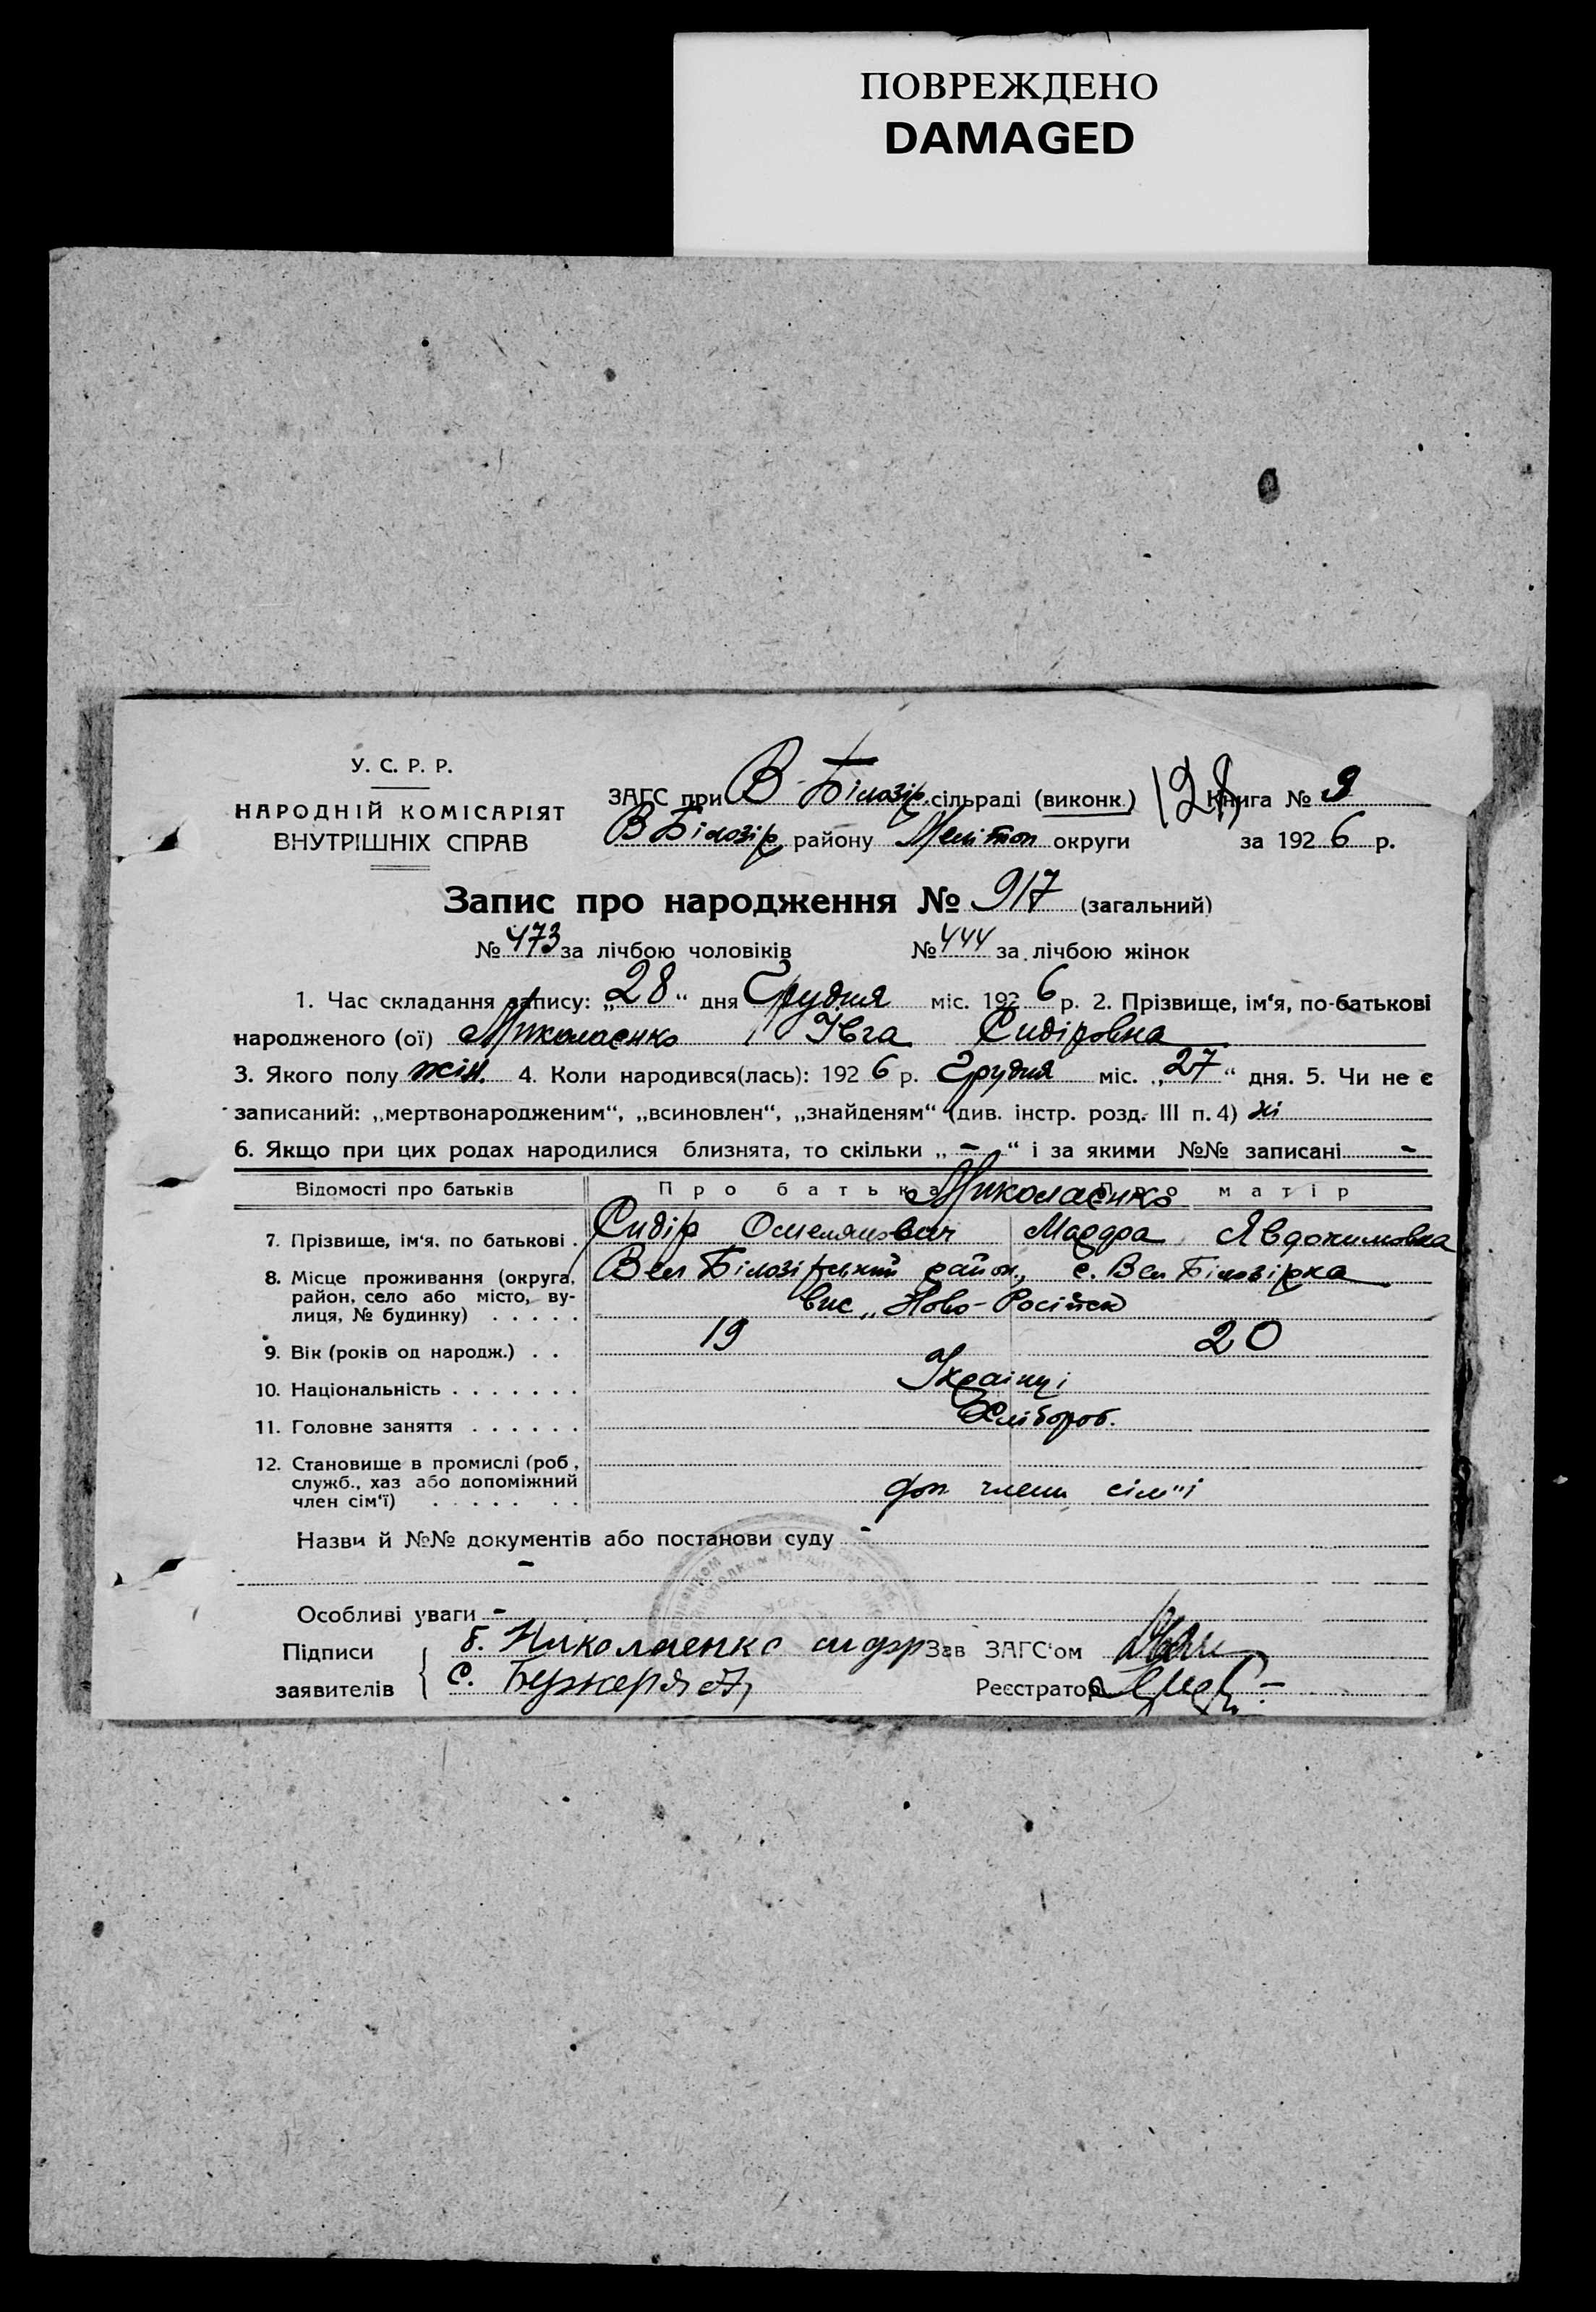 ПОВРЕЖДЕНО
DAMAGED
У. С. Р. Р.
НАРОДНІЙ КОМІСАРІЯТ
ВНУТРІШНІХ СПРАВ
ЗАГС при В-Білозір. сільраді (виконк.) Книга № 9
В Білозір. району Мелітоп округи за 1926 р.
Запис про народження № 917 (загальний)
№ 473 за лічбою чоловіків № 444 за лічбою жінок
1. Час складання запису: „28“ дня Грудня міс. 1926 р. 2. Прізвище, ім‘я, по-батькові
народженого (ої) Миколаєнко Ївга Сидіровна
3. Якого полу жін. 4. Коли народився(лась): 1926 р. Грудня міс. „27“ дня. 5. Чи не є
записаний: „мертвонародженим“, „всиновлен“, „знайденям“ (див. інстр. розд. III п. 4) ні
6. Якщо при цих родах народилися близнята, то скільки „-“ і за якими №№ записані -
Відомості про батьків Про батька Про матір
Миколаєнко
7. Прізвище, ім‘я, по батькові . Сидір Омелянович Явдокимовна
8. Місце проживання (округа, район, село або місто, вулиця, № будинку) . . . . . Вел Білозірський район, с. Вел Білозірка
вис „Ново-Російск
9. Вік (років од народж.) . . 19 20
10. Національність . . . . . . . Українці
11. Головне заняття . . . . . . Хлібороб.
12. Становище в промислі (роб, служб., хаз або допоміжний член сім‘ї) . . . . . . . доп члени сім"ї
Назви й №№ документів або постанови суду -
-
Особливі уваги -
Підписи б. Николаенко Зав ЗАГС‘ом
заявителів с. Реєстратор